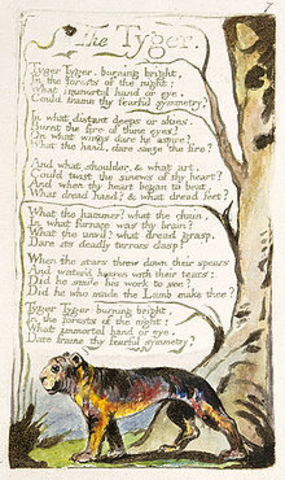 7
The Tyger.
Tyger Tyger. burning bright,
In the forests of the night;
What immortal hand or eye,
Could frame thy fearful symmetry?
In what distant deeps or skies.
Burnt the fire of thine eyes?
On what wings dare he aspire?
What the hand, dare sieze the fire?
And what shoulder, & what art,
Could twist the sinews of thy heart?
And when thy heart began to beat,
What dread hand? & what dread feet?
What the hammer? what the chain,
In what furnace was thy brain?
What the anvil? what dread grasp,
Dare its deadly terrors clasp?
When the stars threw down their spears
And water'd heaven with their tears:
Did he smile his work to see?
Did he who made the Lamb make thee?
Tyger Tyger burning bright,
In the forests of the night:
What immortal hand or eye,
Dare frame thy fearful symmetry?